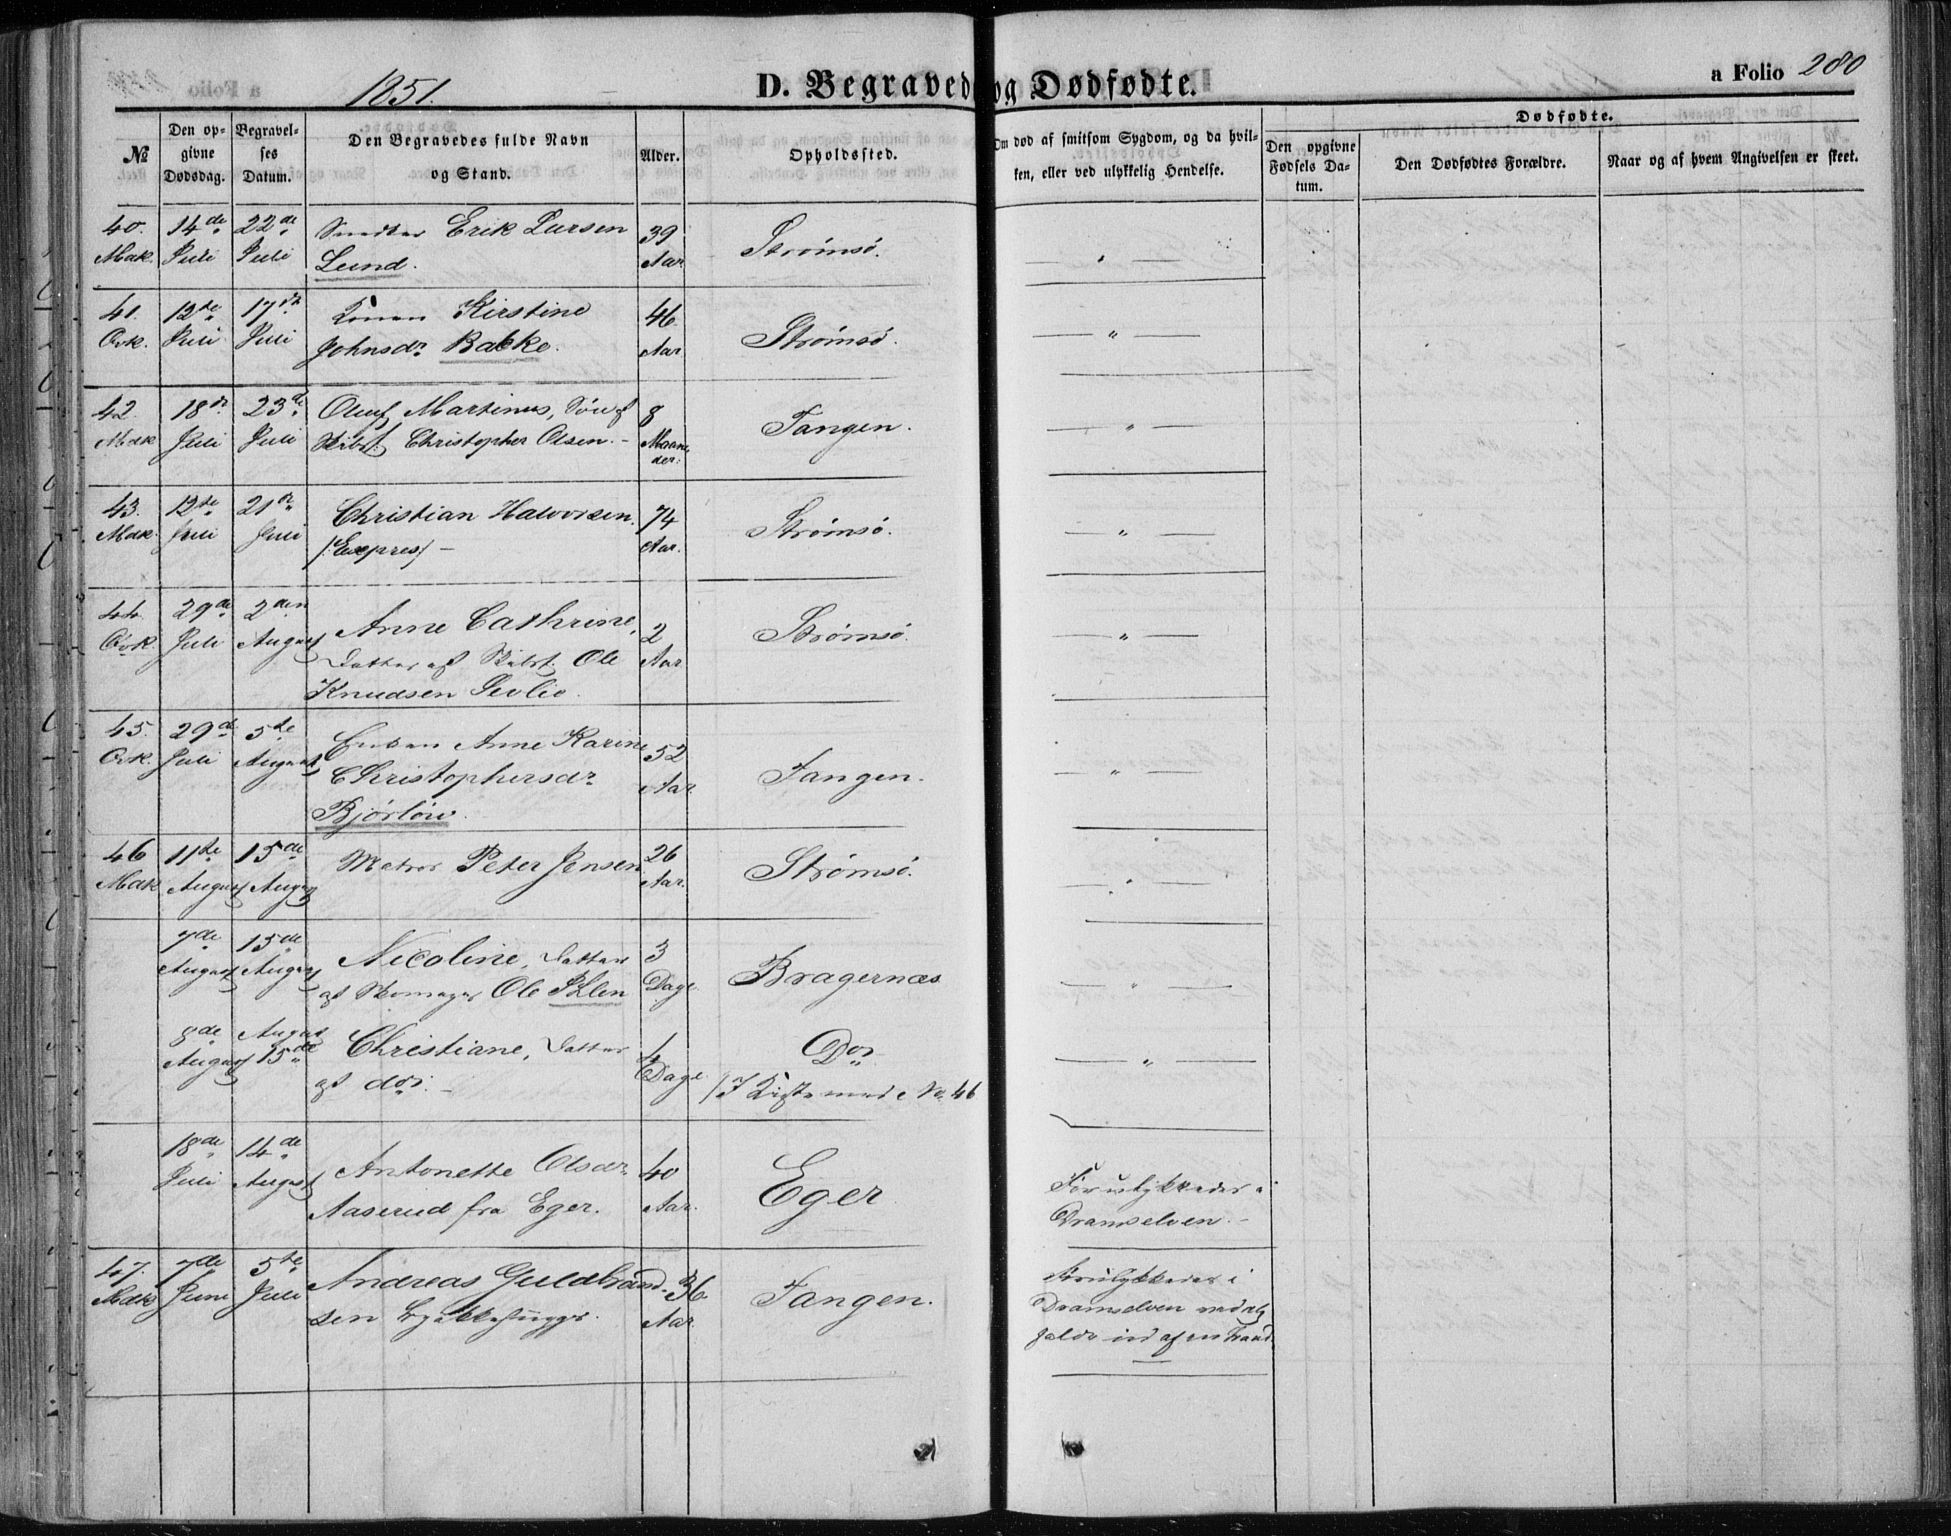 1851.
D. Begravede og Dødfødte.
a Folio 280
№
Den opgivne Dødsdag.
Begravelses Datum.
Den Begravedes fulde Navn og Stand.
Alder.
Opholdssted.
Om død af smitsom Sygdom, og da hvilken, eller ved ulykkelig Hendelse.
Dødfødte.
Den opgivne Fødsels Datum.
Den Dødfødtes Forældre.
Naar og af hvem Angivelsen er skeet.
40. 14de 22de Erik Larsen 39 Strømsø. — " —
Mdk. Juli Juli Lund. Aar
41. 12te 17de Konen Kirstine 46 Strømsø. — " —
Qvk. Juli Juli Johnsdr. Bakke. Aar
42. 18de 23de Oluf Martinus, Søn af 8 Tangen. — " —
Mdk Juli Juli Christopher Olsen. – Maaneder.
43. 12te 21de Christian Halvorsen. 74 Strømsø. — " —
Mdk. Juli Juli /:Expres/ – Aar.
44. 29de 2den Anne Cathrine, 2 Strømsø. — " —
Qvk. Juli August Datter af Ole Aar
Knudsen
45. 29de 5te Enken Anne Karine 52 Tangen. — " —
Qvk. Juli August Christophersdr. Aar
Bjørløw.
46 11te 15de Matros Peter Jensen 26 Strømsø. — " —
Mdk August August Aar.
7de 15de Nicoline, Datter 3 Bragernæs — " —
August August af Skomager Ole Ihlen Dage
8de August Christiane, Datter 4 Do. — " —
August 15de af do. – Dage /I Kiste med No. 46
18de 14de Antonette Olsdr. 40 Eger Forulykkedes i
Juli August Aaserud fra Eger. Aar. Dramselven. –
47. 7de 5te Andreas Guldbrand- 36 Tangen. Forulykkedes i
Mdk Juni Juli sen Aar Dramselven ved at
falde ud af en